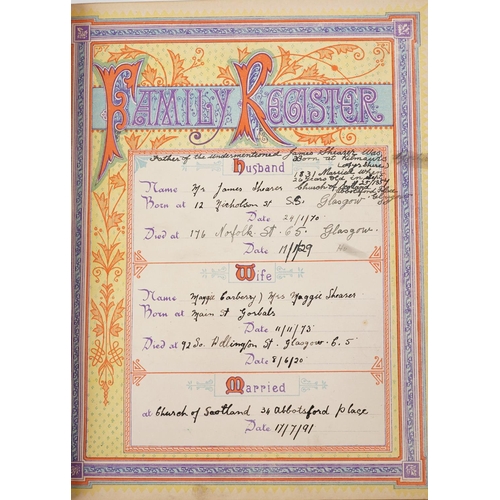 FAMILY REGISTER
Father of the undermentioned James Shearer was
Born at Kilmaurs
Ayrshire
1831 Married when
Husband
Name Mr James Shearer
Church of
Born at 12 Nicholson St S.S. Glasgow
Date 24/1/70
Died at 176 Norfolk St C.5. Glasgow.
Date 29
Wife
Name Maggie Carberry) Mrs Maggie Shearer
Born at Main St Gorbals
Date 11/11/73
Died at 92 So. Adlington St. Glasgow. C.5
Date 8/6/20
Married
at Church of Scotland 34 Abbotsford Place
Date 17/7/91